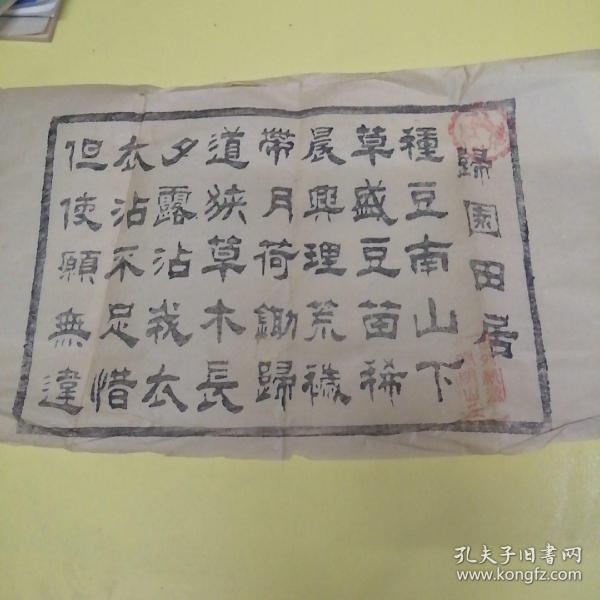 歸園田居
種豆南山下
草盛豆苗稀
晨興理荒穢
帶月荷鋤歸
道狹草木長
夕露沾我衣
衣沾不足惜
但使願無違
孔夫子旧书网
www.kongfz.com